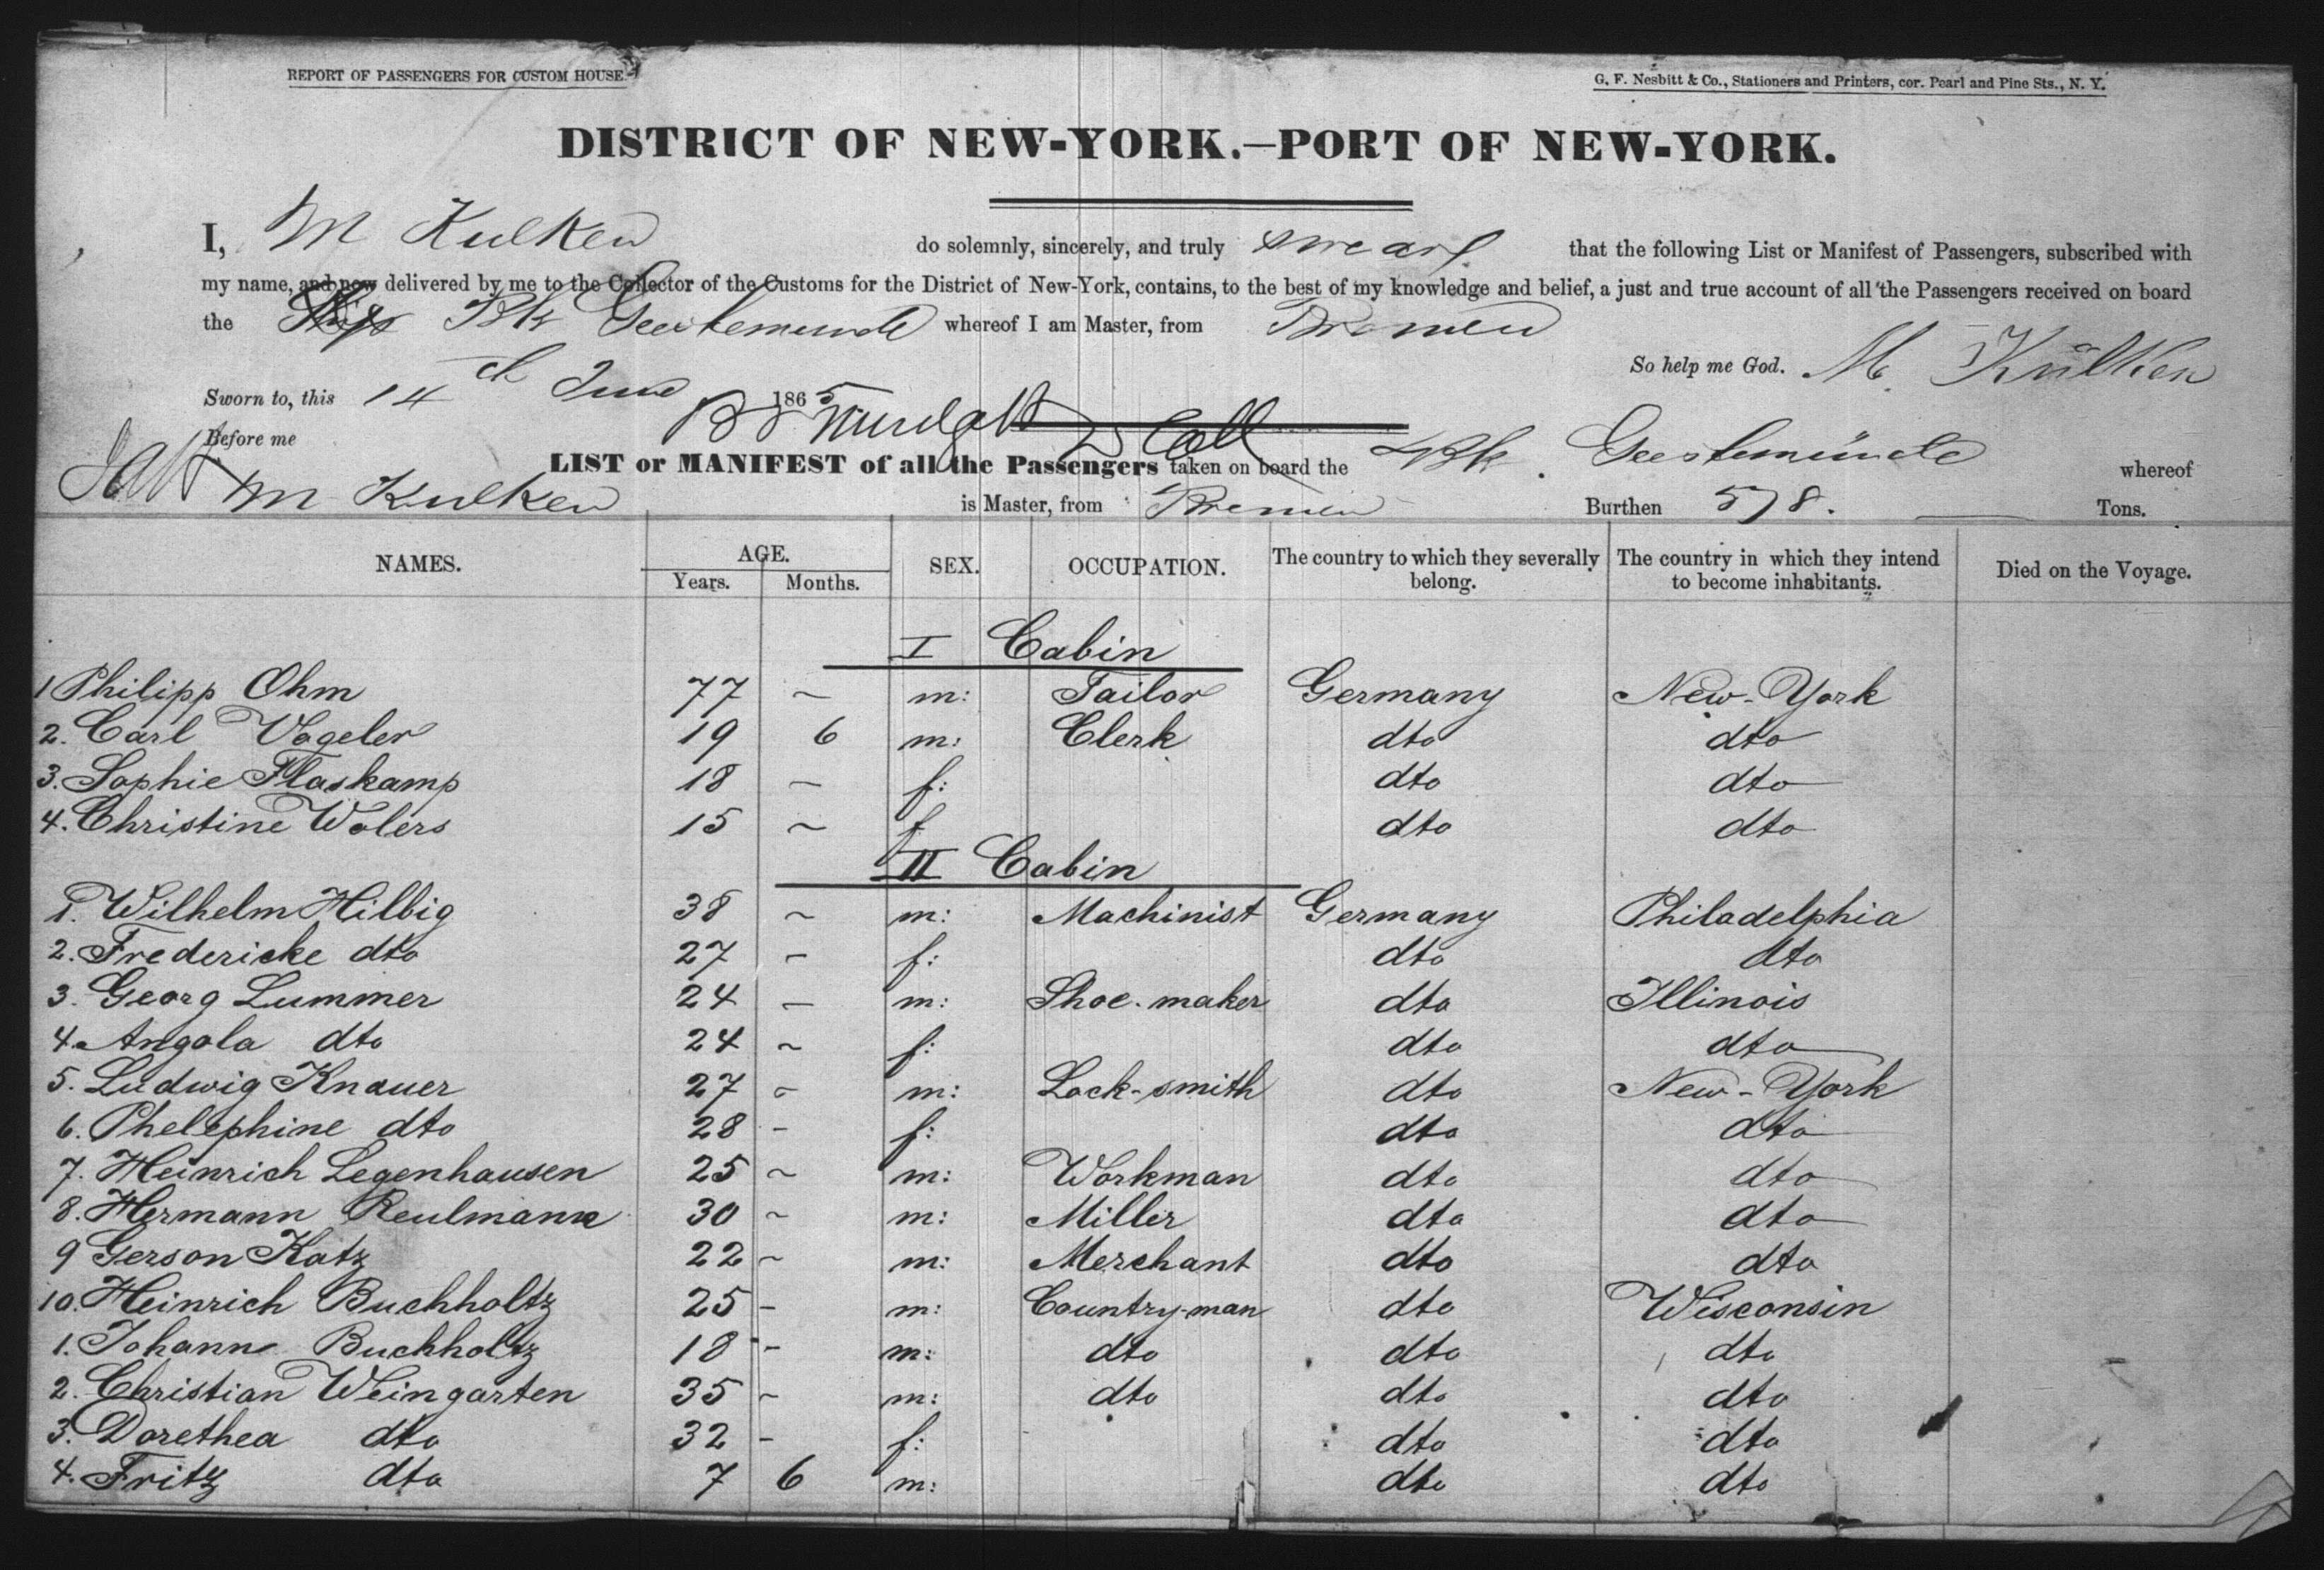 REPORT OF PASSENGERS FOR CUSTOM HOUSE
G. F. Nesbitt & Co., Stationers and Printers, cor. Pearl and Pine Sts., N. Y.
DISTRICT OF NEW-YORK.—PORT OF NEW-YORK.
I, M Kulken do solemnly, sincerely, and truly swear that the following List or Manifest of Passengers, subscribed with
my name, and now delivered by me to the Collector of the Customs for the District of New-York, contains, to the best of my knowledge and belief, a just and true account of all the Passengers received on board
the Ship Bk Geestemunde whereof I am Master, from Bremen
So help me God. M. Külken
Sworn to, this 14th June 1865
Before me
LIST or MANIFEST of all the Passengers taken on board the Bk. Geestemünde whereof
M Kulken is Master, from Bremen Burthen 578. Tons.
NAMES. AGE. SEX. OCCUPATION. The country to which they severally belong. The country in which they intend to become inhabitants. Died on the Voyage.
Years. Months.
I Cabin
1 Philipp Ohm 77 ~ m: Tailor Germany New-York
2. Carl Vogeler 19 6 m: Clerk dto dto
3. Sophie Flaskamp 18 — f: dto dto
4. Christine Wolers 15 ~ f dto dto
II Cabin
1. Wilhelm Hilbig 38 ~ m: Machinist Germany Philadelphia
2. Fredericke dto 27 - f: dto dto
3. Georg Lummer 24 — m: Shoe-maker dto Illinois
4. Angola dto 24 ~ f: dto dto
5. Ludwig Knauer 27 - m: Lock-smith dto New-York
6. Phelephine dto 28 - f: dto dto
7. Heinrich Legenhausen 25 ~ m: Workman dto dto
8. Hermann Reulmann 30 ~ m: Miller dto dto
9 Gerson Katz 22 ~ m: Merchant dto dto
10. Heinrich Buchholtz 25 - m: Country-man dto Wisconsin
1. Johann Buchholtz 18 - m: dto dto dto
2. Christian Weingarten 35 - m: dto dto dto
3. Dorethea dto 32 - f: dto dto
4. Fritz dto 7 6 m: dto dto